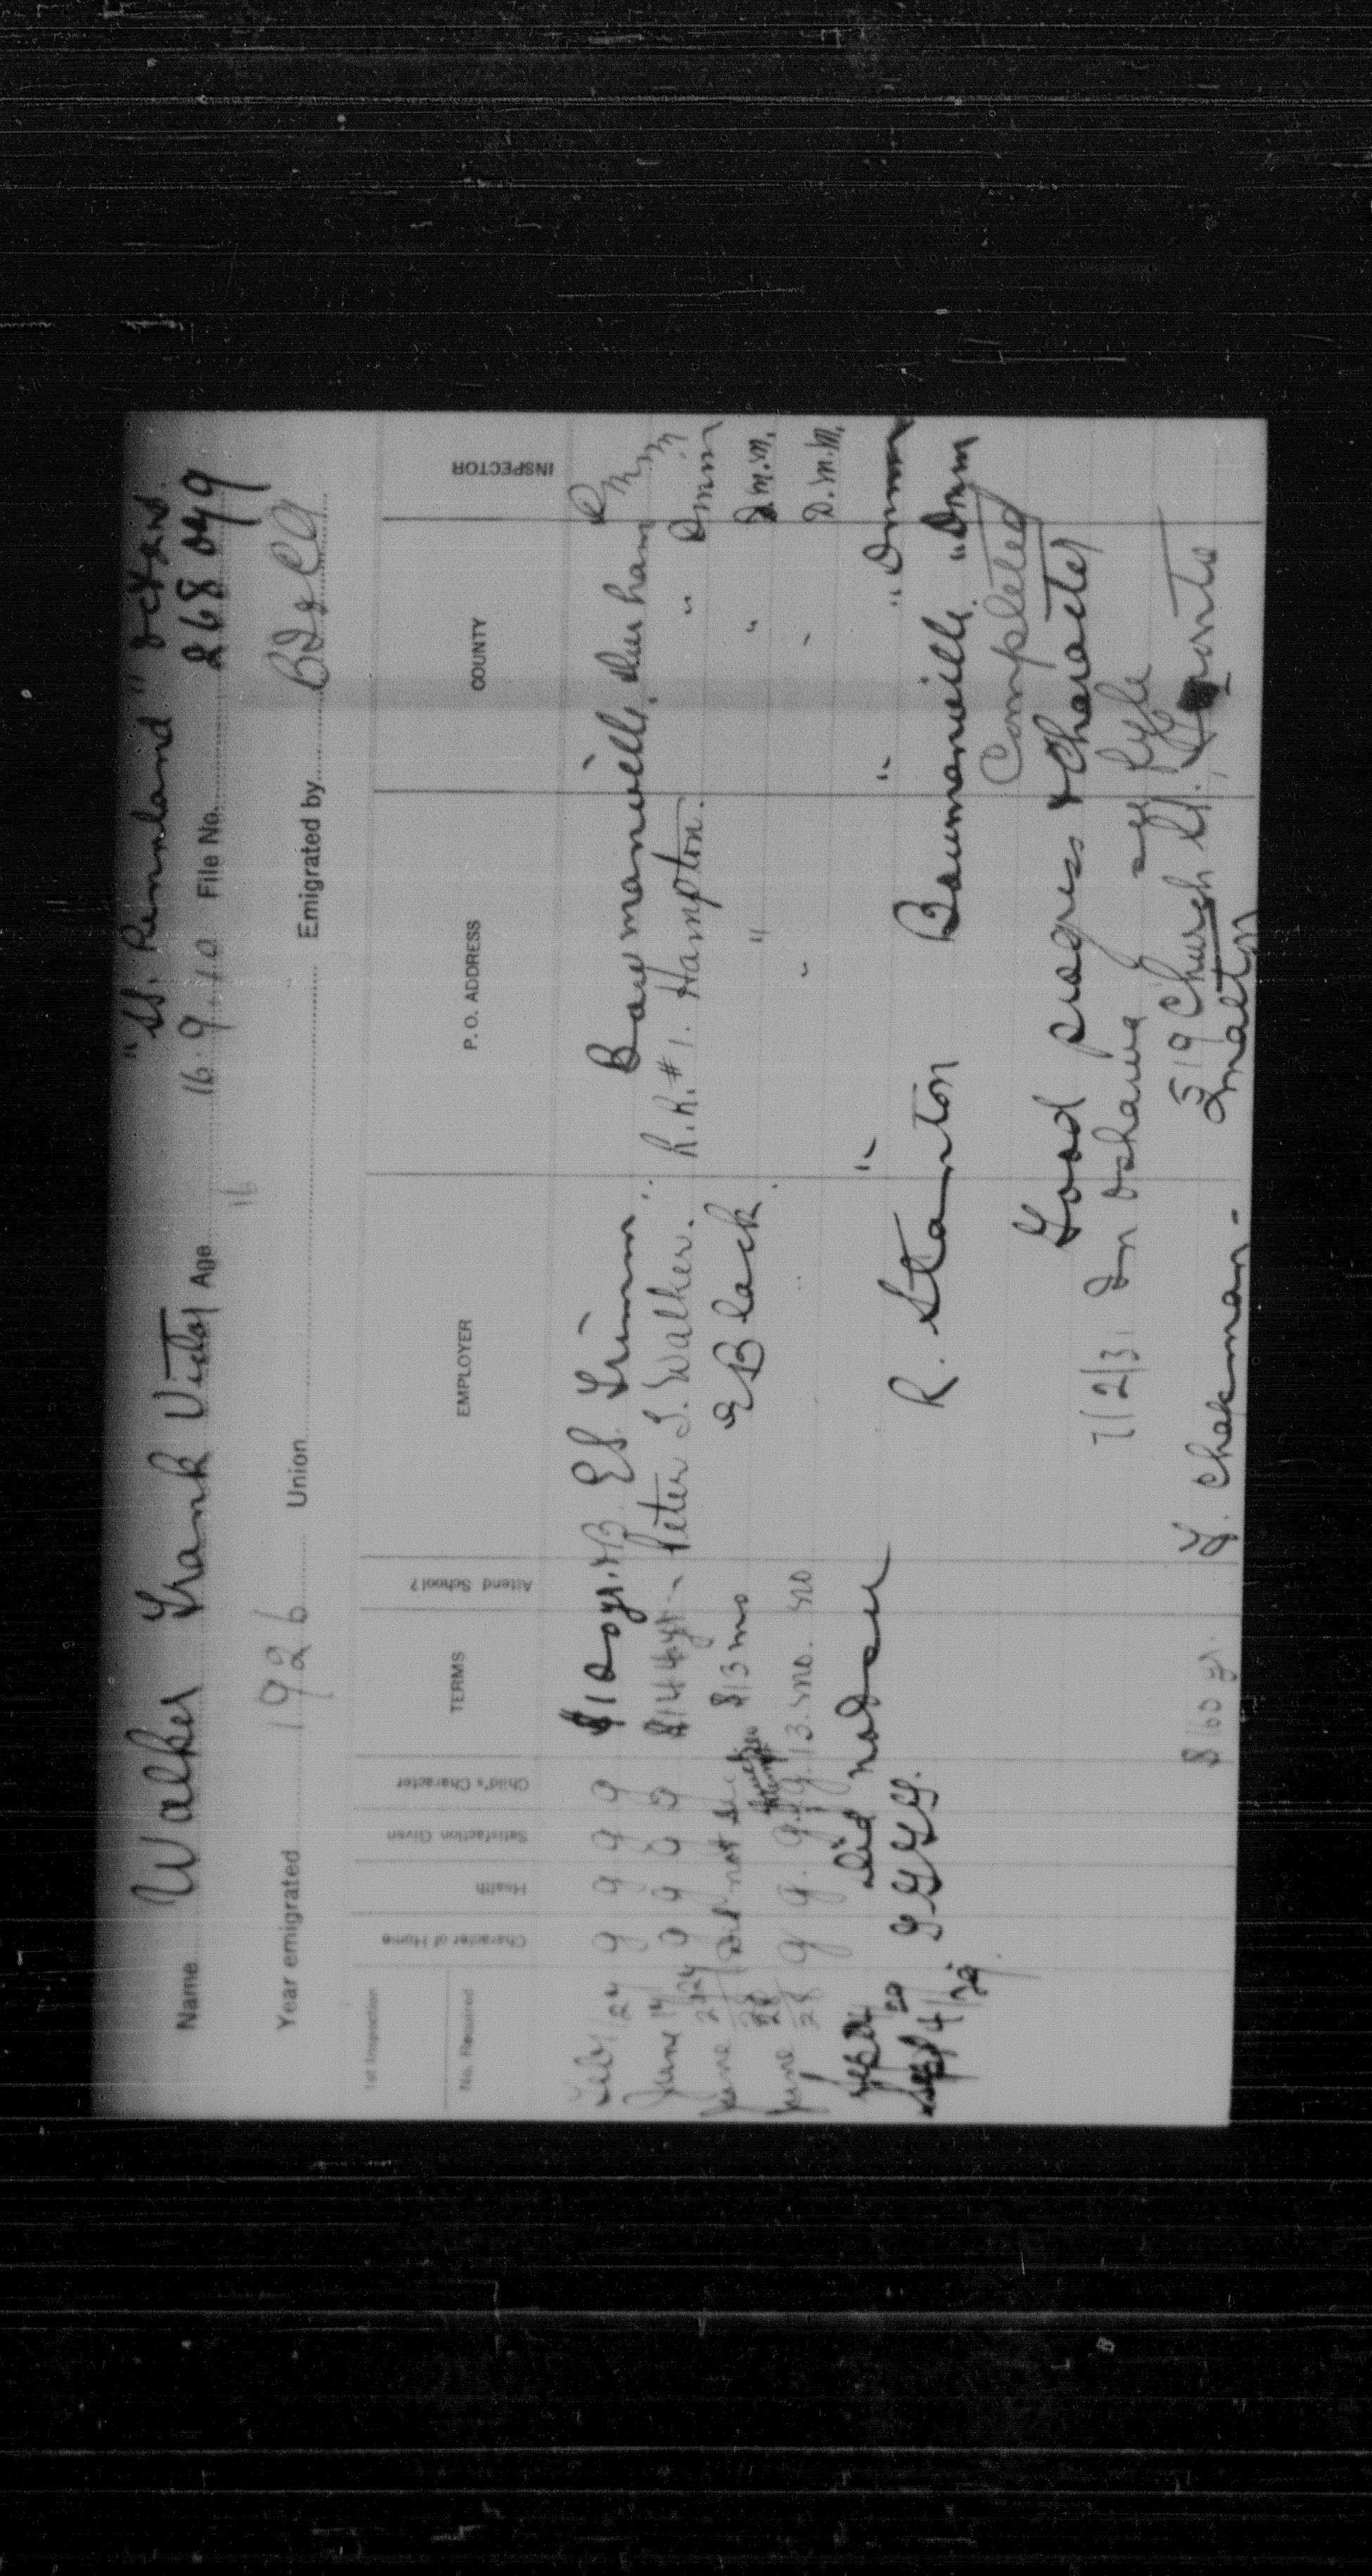 "SS. Pennland" Oct 2nd.
Name Walker Frank Victor Age 16. 9/10 File No. 268049
16
Year emigrated 1926 Union Emigrated by
1st Inspection
No. Required Character of Home Health Satisfaction Given Child's Character TERMS Attend School? EMPLOYER P. O. ADDRESS COUNTY INSPECTOR
g g g g $120 yr. Bowmanville, Durham
June 14 g g g g $144 yr - Peter S. Walker. R.R. #1. Hampton. " Dmm
June Did not see $13 mo E Black " " D.M.M.
June 28/28 g g. g. g. 13. mo. no " - D.M.M.
did not see " " " Dmm
Sept 4/29. G. G. G. G. R. Stanton Bowmanville " Dmm
Completed
Good progress & Character
7/2/31 In Oshawa
519 Church St. Toronto
$160 yr. F. Chapman - Malton